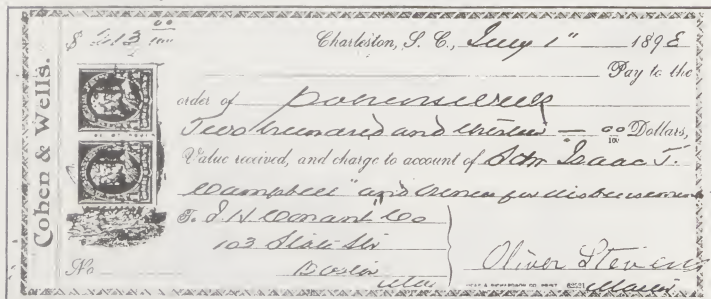 Cohen & Wells.
$ 213 00/100
Charleston, S. C., July 1" 1898
Pay to the
order of
Two hundred and thirteen — 00/100 Dollars,
Value received, and charge to account of Schr Isaac T.
Campbell" and owners for disbursements
To J H Conant & Co
103 State Str
Boston
Mass
No
Oliver Stevens
Master